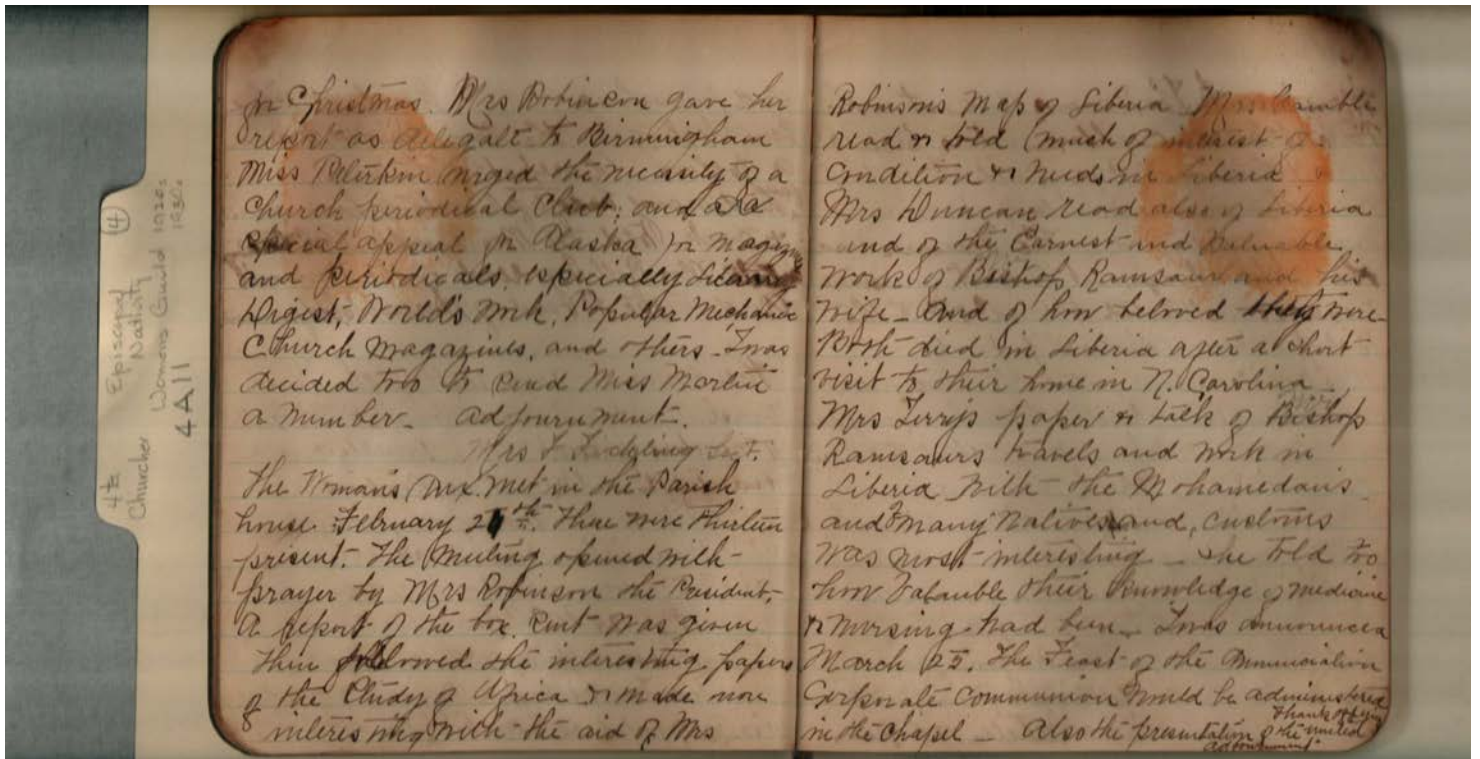 4 to
Churches
Episcopal
Nativity
④
Womens Guild 1920s
1930s
4A11
for Christmas. Mrs Robinson gave her
report as delegate to Birmingham
Miss Peterkin urged the necessity of a
Church periodical Club; and as a
special appeal for Alaska for magazines
and periodicals, especially Literary
Digest, World's Work, Popular Mechanic
Church Magazines, and others. Twas
decided too to send Miss Martin
a number. adjournment.
Mrs F Fickling Sect.
The Woman's Aux met in the Parish
house February 2 th. There were thirteen
present. The meeting opened with
prayer by Mrs Robinson the President,
A report of the box sent was given
Then followed the interesting papers
of the Study of Africa & made more
interesting with the aid of Mrs
Robinson's Map of Liberia. Mrs Gamble
read & told much of interest of
Condition & needs in Liberia
Mrs Duncan read also of Liberia
and of the Earnest and Valuable
work of Bishop Ramsaur and his
wife - and of how beloved they were
Both died in Liberia after a short
visit to their home in N. Carolina
Mrs Terry's paper & talk of Bishop
Ramsaurs travels and work in
Liberia with the Mohamedans
and many Natives and, customs
was most interesting - she told too
how Valuable their Knowledge of medicine
& nursing had been - Twas announced
March 25. The Feast of the Annunciation
Corporate Communion would be administered
in the Chapel - Also the presentation of the united
Thank offering
adjournment